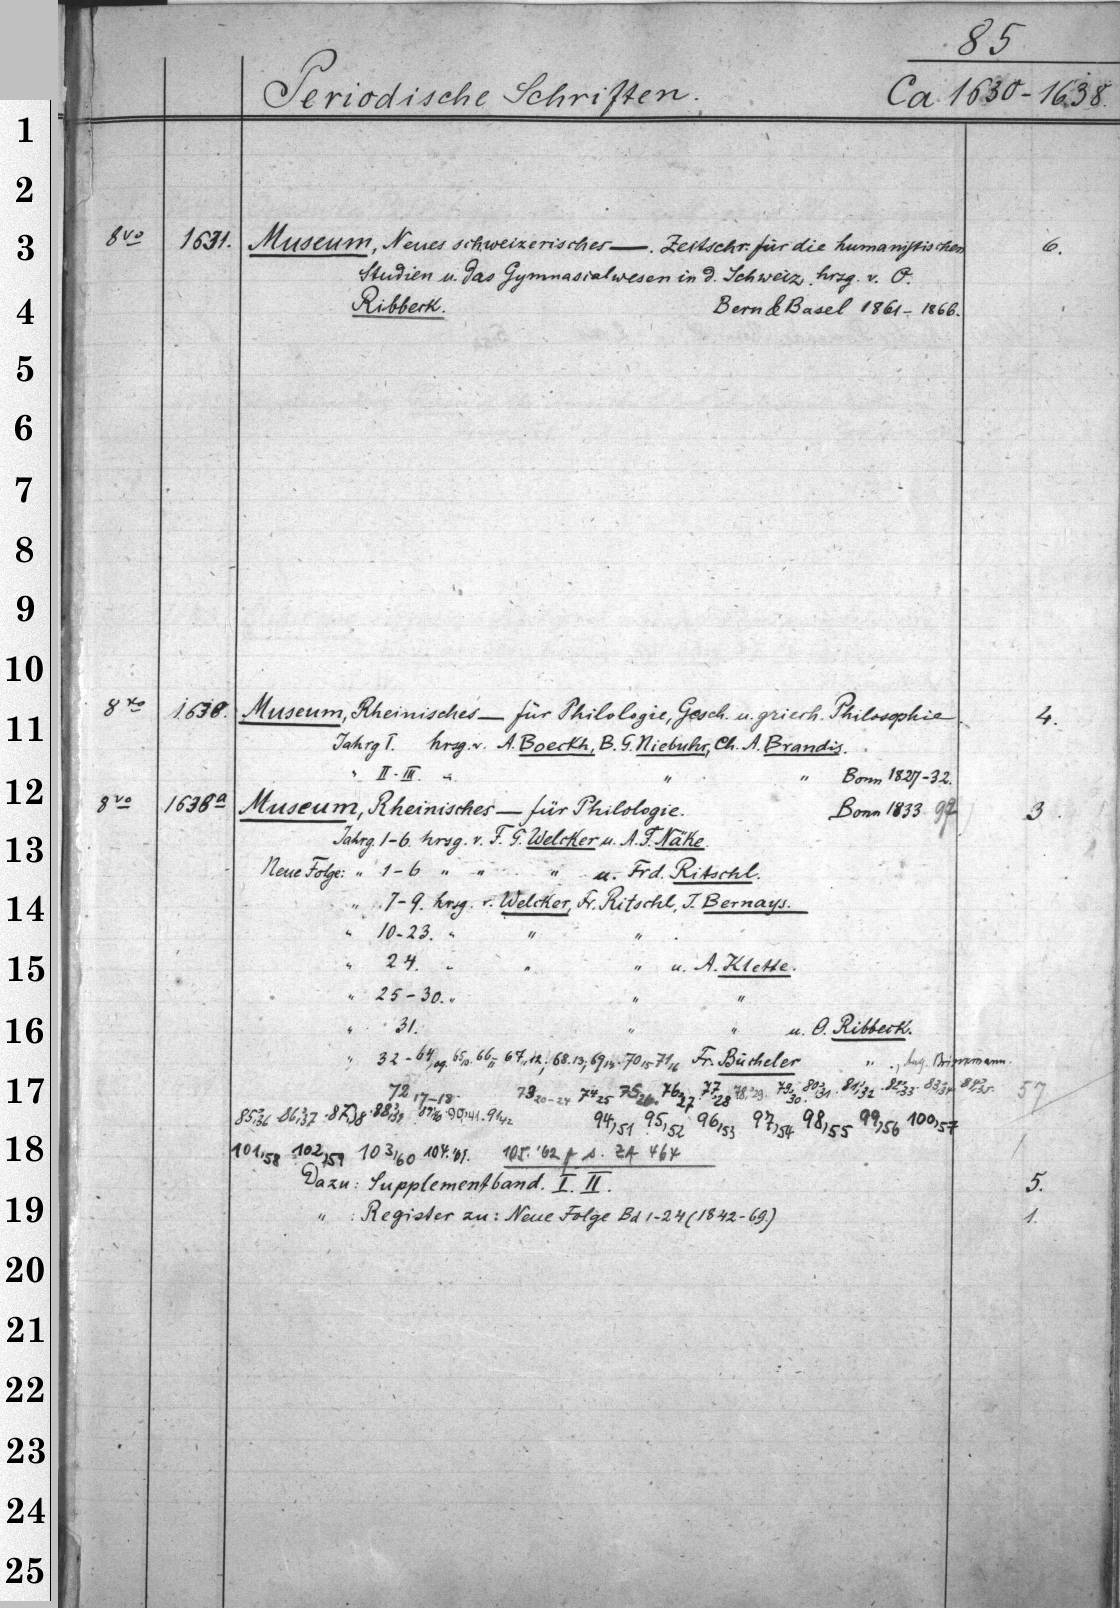 85
Periodische Schriften.
Ca 1630-1638.
1
2
3
4
5
6
7
8
9
10
11
12
13
14
15
16
17
18
19
20
21
22
23
24
25
8vo 1631. Museum, Neues schweizerisches —. Zeitschr. für die humanistischen 6.
Studien u. das Gymnasialwesen in d. Schweiz. hrsg. v. O.
Ribbeck. Bern & Basel 1861- 1866.
8vo 1638. Museum, Rheinisches — für Philologie, Gesch. u. griech. Philosophie. 4.
Jahrg I. hrsg. v. A. Boeckh, B. G. Niebuhr, Ch. A. Brandis.
" II-III. " " " Bonn 1827-32.
8vo 1638a Museum, Rheinisches — für Philologie. Bonn 1833 3
Jahrg. 1-6 hrsg. v. F. G. Welcker u. A. F. Näke.
Neue Folge: " 1-6 " " " u. Frd. Ritschl.
" 7-9. hrsg. v. Welcker, Fr. Ritschl, J. Bernays.
" 10-23. " " " .
" 24. " " " u. A. Klette.
" 25-30. " " "
" 31. " " u. O. Ribbeck.
" 32-64,09. 65,10. 66,11 67,12, 68.13, 69,14. 70,15-71,16 Fr. Bücheler " ., Aug. Brinkmann.
72 17-18 73 20-24 74 25 75 26. 76 27 77 28 78, 29. 79, 30. 80, 31. 81, 32 82, 33 83, 34 84, 35. 57
85, 36 86, 37 87, 38 88, 39 90, 41-91, 42 94,51 95,52 96,53 97,54 98,55 99,56 100,57
101,58 102,59 103,60 104.61. 105. '62 s. ZA 464
Dazu: Supplementband. I. II. 5.
" : Register zu: Neue Folge Bd 1-24 (1842-69.) 1.